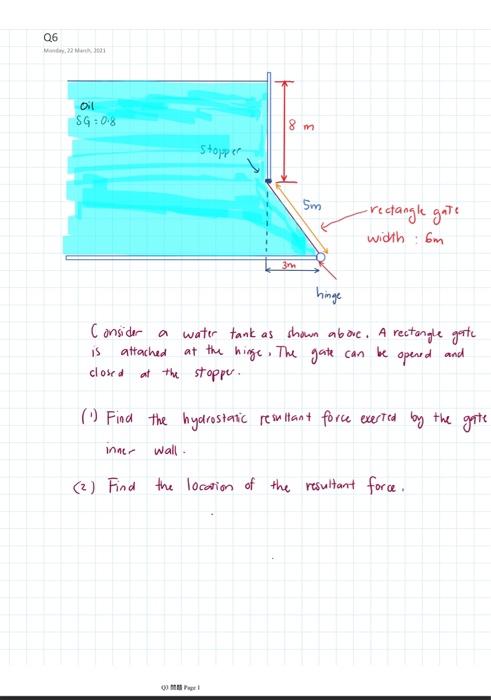 Q6
Monday, 22 March, 2021
Oil
SG : 0.8
8 m
Stopper
5m
rectangle gate
width : 6m
3m
hinge
Consider a water tank as shown above. A rectangle gate
is attached at the hinge. The gate can be opened and
closed at the stopper.
(1) Find the hydrostatic resultant force exerted by the gate
inner wall.
(2) Find the location of the resultant force.
Q3 問題 Page 1